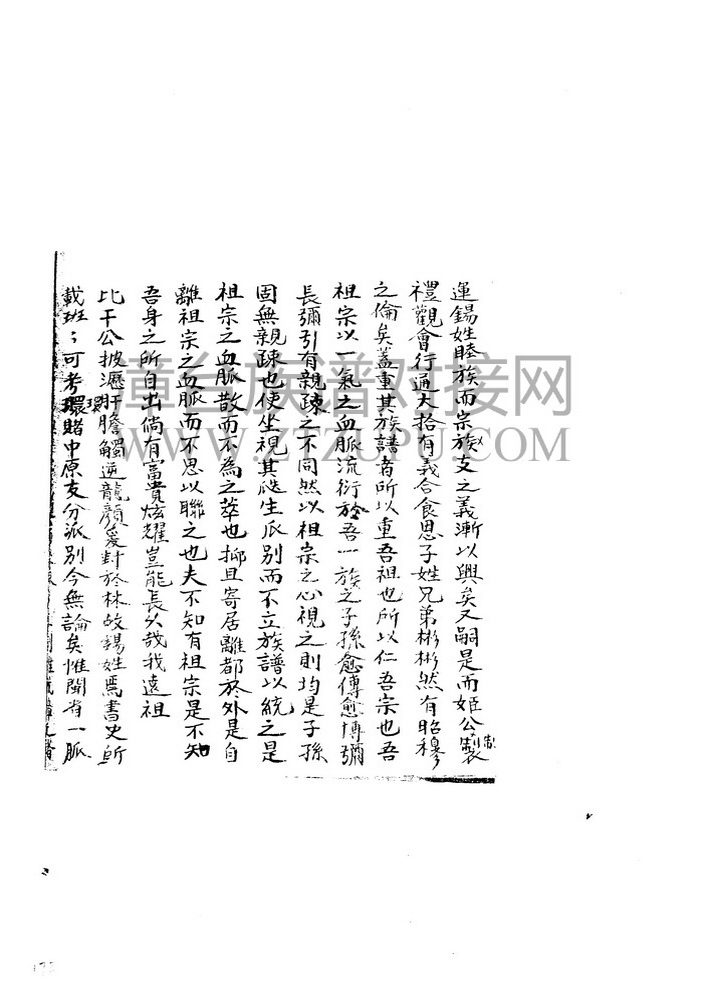 運錫姓睦族而宗族支之義漸以興矣又嗣是而姬公製
禮觀會行通大祫有義合食思子姓兄弟彬彬然有昭穆
之倫矣蓋重其族譜者所以重吾祖也所以仁吾宗也吾
祖宗以一氣之血脈流衍於吾一族之子孫愈傳愈博彌
長彌引有親疎之不同然以祖宗之心視之則均是子孫
固無親疎也使坐視其生瓜別而不立族譜以統之是
祖宗之血脈散而不為之萃也抑且寄居離都於外是自
離祖宗之血脈而不思以聯之也夫不知有祖宗是不知
吾身之所自出倘有富貴炫耀豈能長久哉我遠祖
比干公披瀝肝膽觸逆龍顏爰封於林故錫姓焉書史所
載班〻可考環賭中原支分派別今無論矣惟閩省一脈
章台族谱对接网
WWW.ZTZUPU.COM